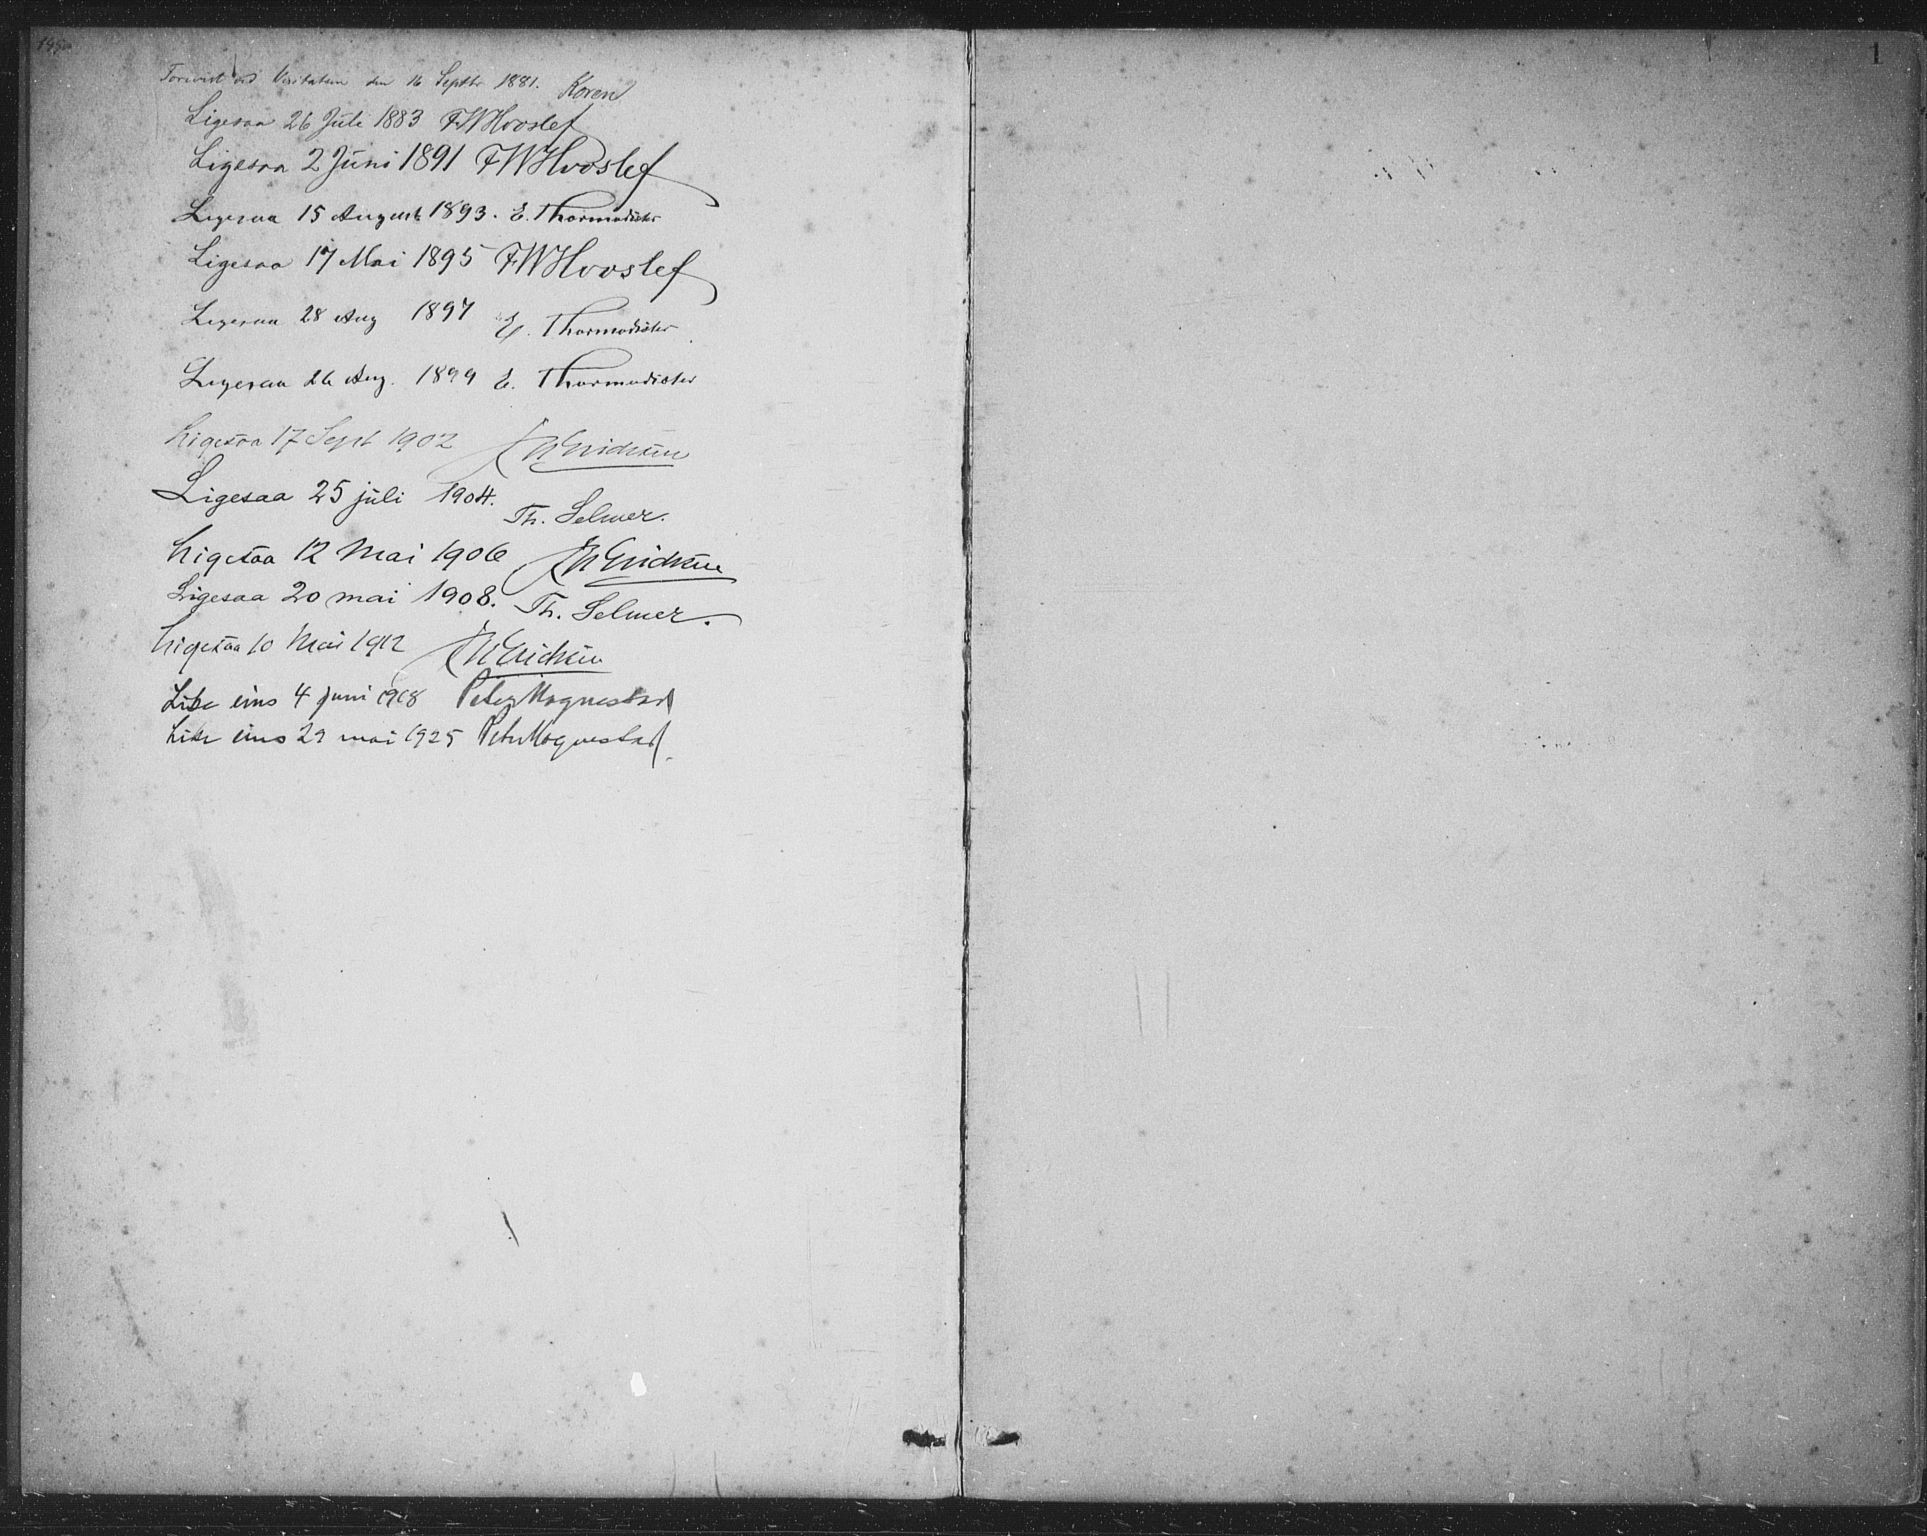 Forevist ved Visitatsen den 16 Septbr 1881. Koren
Ligesaa 26 Juli 1883 FWHvoslef
Ligesaa 2 Juni 1891 FWHvoslef
Ligesaa 15 August 1893. E. Thormodsæter
Ligesaa 17 Mai 1895 FWHvoslef
Ligesaa 28 Aug 1897 E. Thormodsæter
Ligesaa 26 Aug. 1899 E. Thormodsæter
Ligesaa 17 Sept 1902
Ligesaa 25 juli 1904.
Th. Selmer.
Ligesaa 12 Mai 1906
Ligesaa 20 mai 1908. Th. Selmer.
Ligesaa 10 Mai 1912
Like eins 4 juni 1918 Peter Mognestad
Like eins 29 mai 1925 Peter Mognestad
1